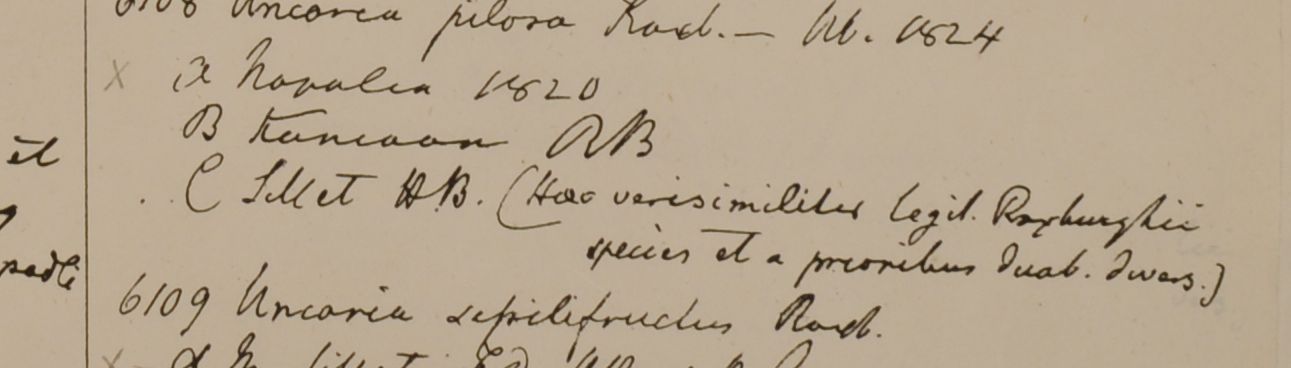 6108 Uncaria pilosa Roxb. — hb. 1824
X A Napalia 1820
et B Kamaon RB
C Sillet HB. (Haec verisimiliter legit. Roxburghii
species et a prioribus duab. divers.)
6109 Uncaria sessilifructus Roxb.